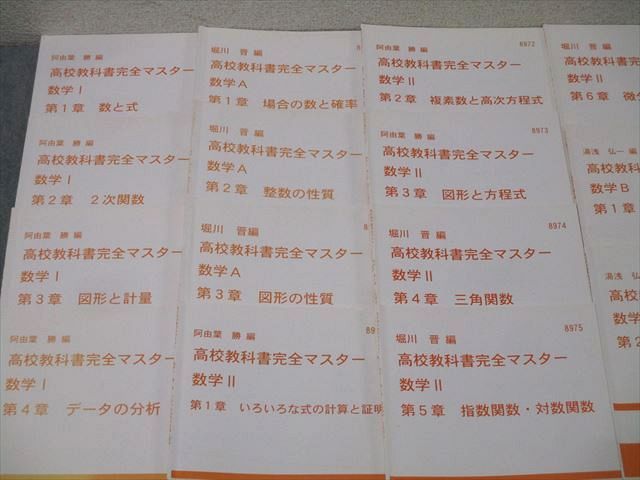 阿由葉 勝 編
高校教科書完全マスター
数学Ⅰ
第1章 数と式
阿由葉 勝 編
高校教科書完全マスター
数学Ⅰ
第2章 2次関数
阿由葉 勝 編
高校教科書完全マスター
数学Ⅰ
第3章 図形と計量
阿由葉 勝 編
高校教科書完全マスター
数学Ⅰ
第4章 データの分析
堀川 晋 編
8
高校教科書完全マスター
数学A
第1章 場合の数と確率
堀川 晋 編
高校教科書完全マスター
数学A
第2章 整数の性質
堀川 晋 編
高校教科書完全マスター
数学A
第3章 図形の性質
阿由葉 勝 編
89
高校教科書完全マスター
数学Ⅱ
第1章 いろいろな式の計算と証明
阿由葉 勝 編
8972
高校教科書完全マスター
数学Ⅱ
第2章 複素数と高次方程式
阿由葉 勝 編
8973
高校教科書完全マスター
数学Ⅱ
第3章 図形と方程式
堀川 晋 編
8974
高校教科書完全マスター
数学Ⅱ
第4章 三角関数
堀川 晋 編
8975
高校教科書完全マスター
数学Ⅱ
第5章 指数関数・対数関数
堀川 晋 編
高校教科書
数学Ⅱ
第6章 微分
湯浅 弘一 編
高校教科
数学B
第1章
湯浅 弘
高校
数学
第2